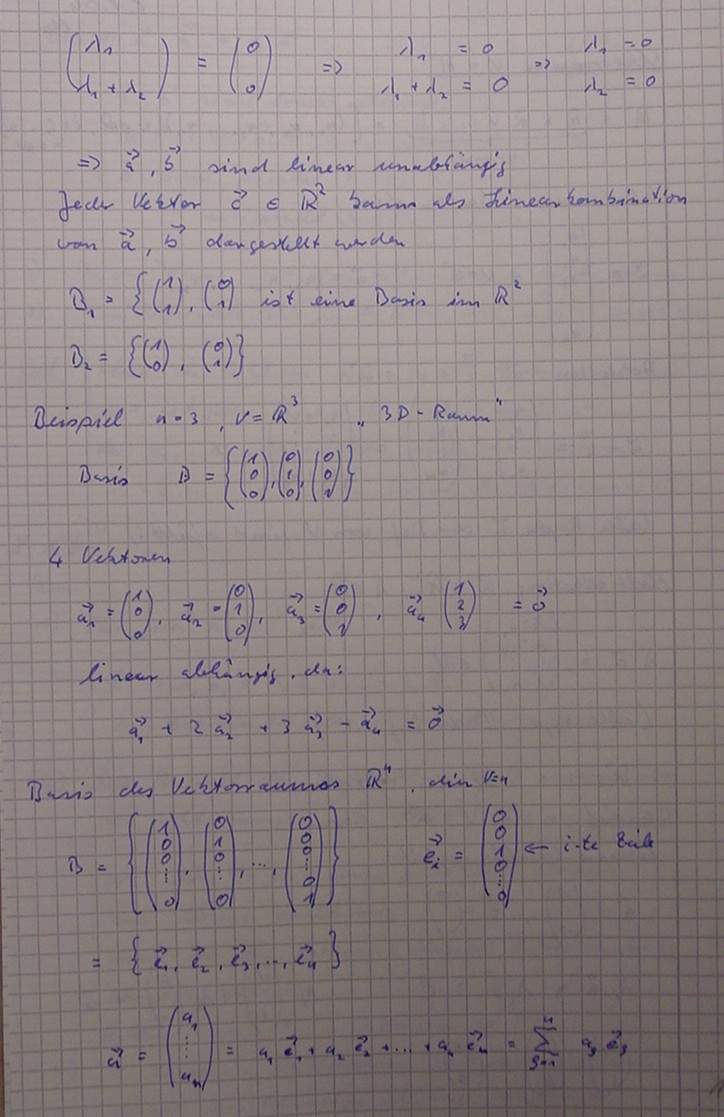 (λ₁ / λ₁ + λ₂) = (0 / 0) ⇒ λ₁ = 0 / λ₁ + λ₂ = 0 ⇒ λ₁ = 0 / λ₂ = 0
⇒ a⃗, b⃗ sind linear unabhängig
Jeder Vektor c⃗ ∈ ℝ² kann als Linearkombination
von a⃗, b⃗ dargestellt werden
B₁ = {(1 / 1), (0 / 1) ist eine Basis im ℝ²
B₂ = {(1 / 0), (0 / 1)}
Beispiel n = 3, V = ℝ³ „3D-Raum"
Basis B = {(1 / 0 / 0), (0 / 1 / 0), (0 / 0 / 1)}
4 Vektoren
a⃗₁ = (1 / 0 / 0), a⃗₂ = (0 / 1 / 0), a⃗₃ = (0 / 0 / 1), a⃗₄ (1 / 2 / 3) = 0⃗
linear abhängig, da:
a⃗₁ + 2 a⃗₂ + 3 a⃗₃ − a⃗₄ = 0⃗
Basis des Vektorraumes ℝⁿ, dim V = n
B = {(1 / 0 / 0 / ... / 0), (0 / 1 / 0 / ... / 0), ..., (0 / 0 / 0 / ... / 0 / 1)} e⃗ᵢ = (0 / 0 / 1 / 0 / ... / 0) ← i-te Zeile
= {e⃗₁, e⃗₂, e⃗₃, ..., e⃗ₙ}
a⃗ = (a₁ / ⋮ / aₙ) = a₁ e⃗₁ + a₂ e⃗₂ + ... + aₙ e⃗ₙ = ∑ⁿⱼ₌₁ aⱼ e⃗ⱼ